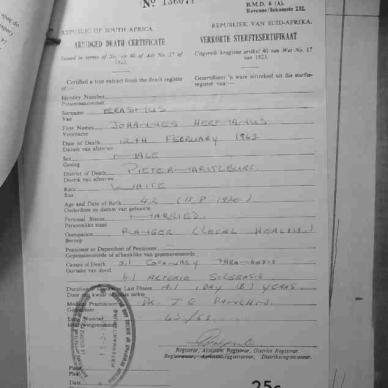 No 136077
B.M.D. 6 (A).
REPUBLIC OF SOUTH AFRICA.
REPUBLIEK VAN SUID-AFRIKA.
ABRIDGED DEATH CERTIFICATE
VERKORTE STERFTESERTIFIKAAT
Issued in terms of Sec. 40 of Act No. 17 of 1923.
Uitgereik kragtens artikel 40 van Wet No. 17 van 1923.
Certified a true extract from the death register of
Gesertifiseer 'n ware uittreksel uit die sterfte-register van
Identity Number
Persoonsnommer
Surname ERASMUS
Van
First Names JOHANNES HERMANUS
Voorname
Date of Death 12TH FEBRUARY 1963
Datum van afsterwe
Sex MALE
Geslag
District of Death PIETERMARITZBURG
Distrik van afsterwe
Race WHITE
Ras
Age and Date of Birth 42
Ouderdom en datum van geboorte
Personal Status MARRIED
Persoonlike staat
Occupation RANGER (LOCAL HEALTH)
Beroep
Pensioner or Dependant of Pensioner
Gepensioneerde of afhanklike van gepensioneerde
Causes of Death CORONARY THROMBOSIS
Oorsake van dood
ARTERIO SCLEROSIS
Duration of Disease or Last Illness DAY YEARS
Duur van siekte
Medical Practitioner DR. J. G.
Geneesheer
63
Registrar, Assistant Registrar, District Registrar.
Registrateur, Assistent-registrateur, Distriksregistrateur.
Place
Plek
Date
25c